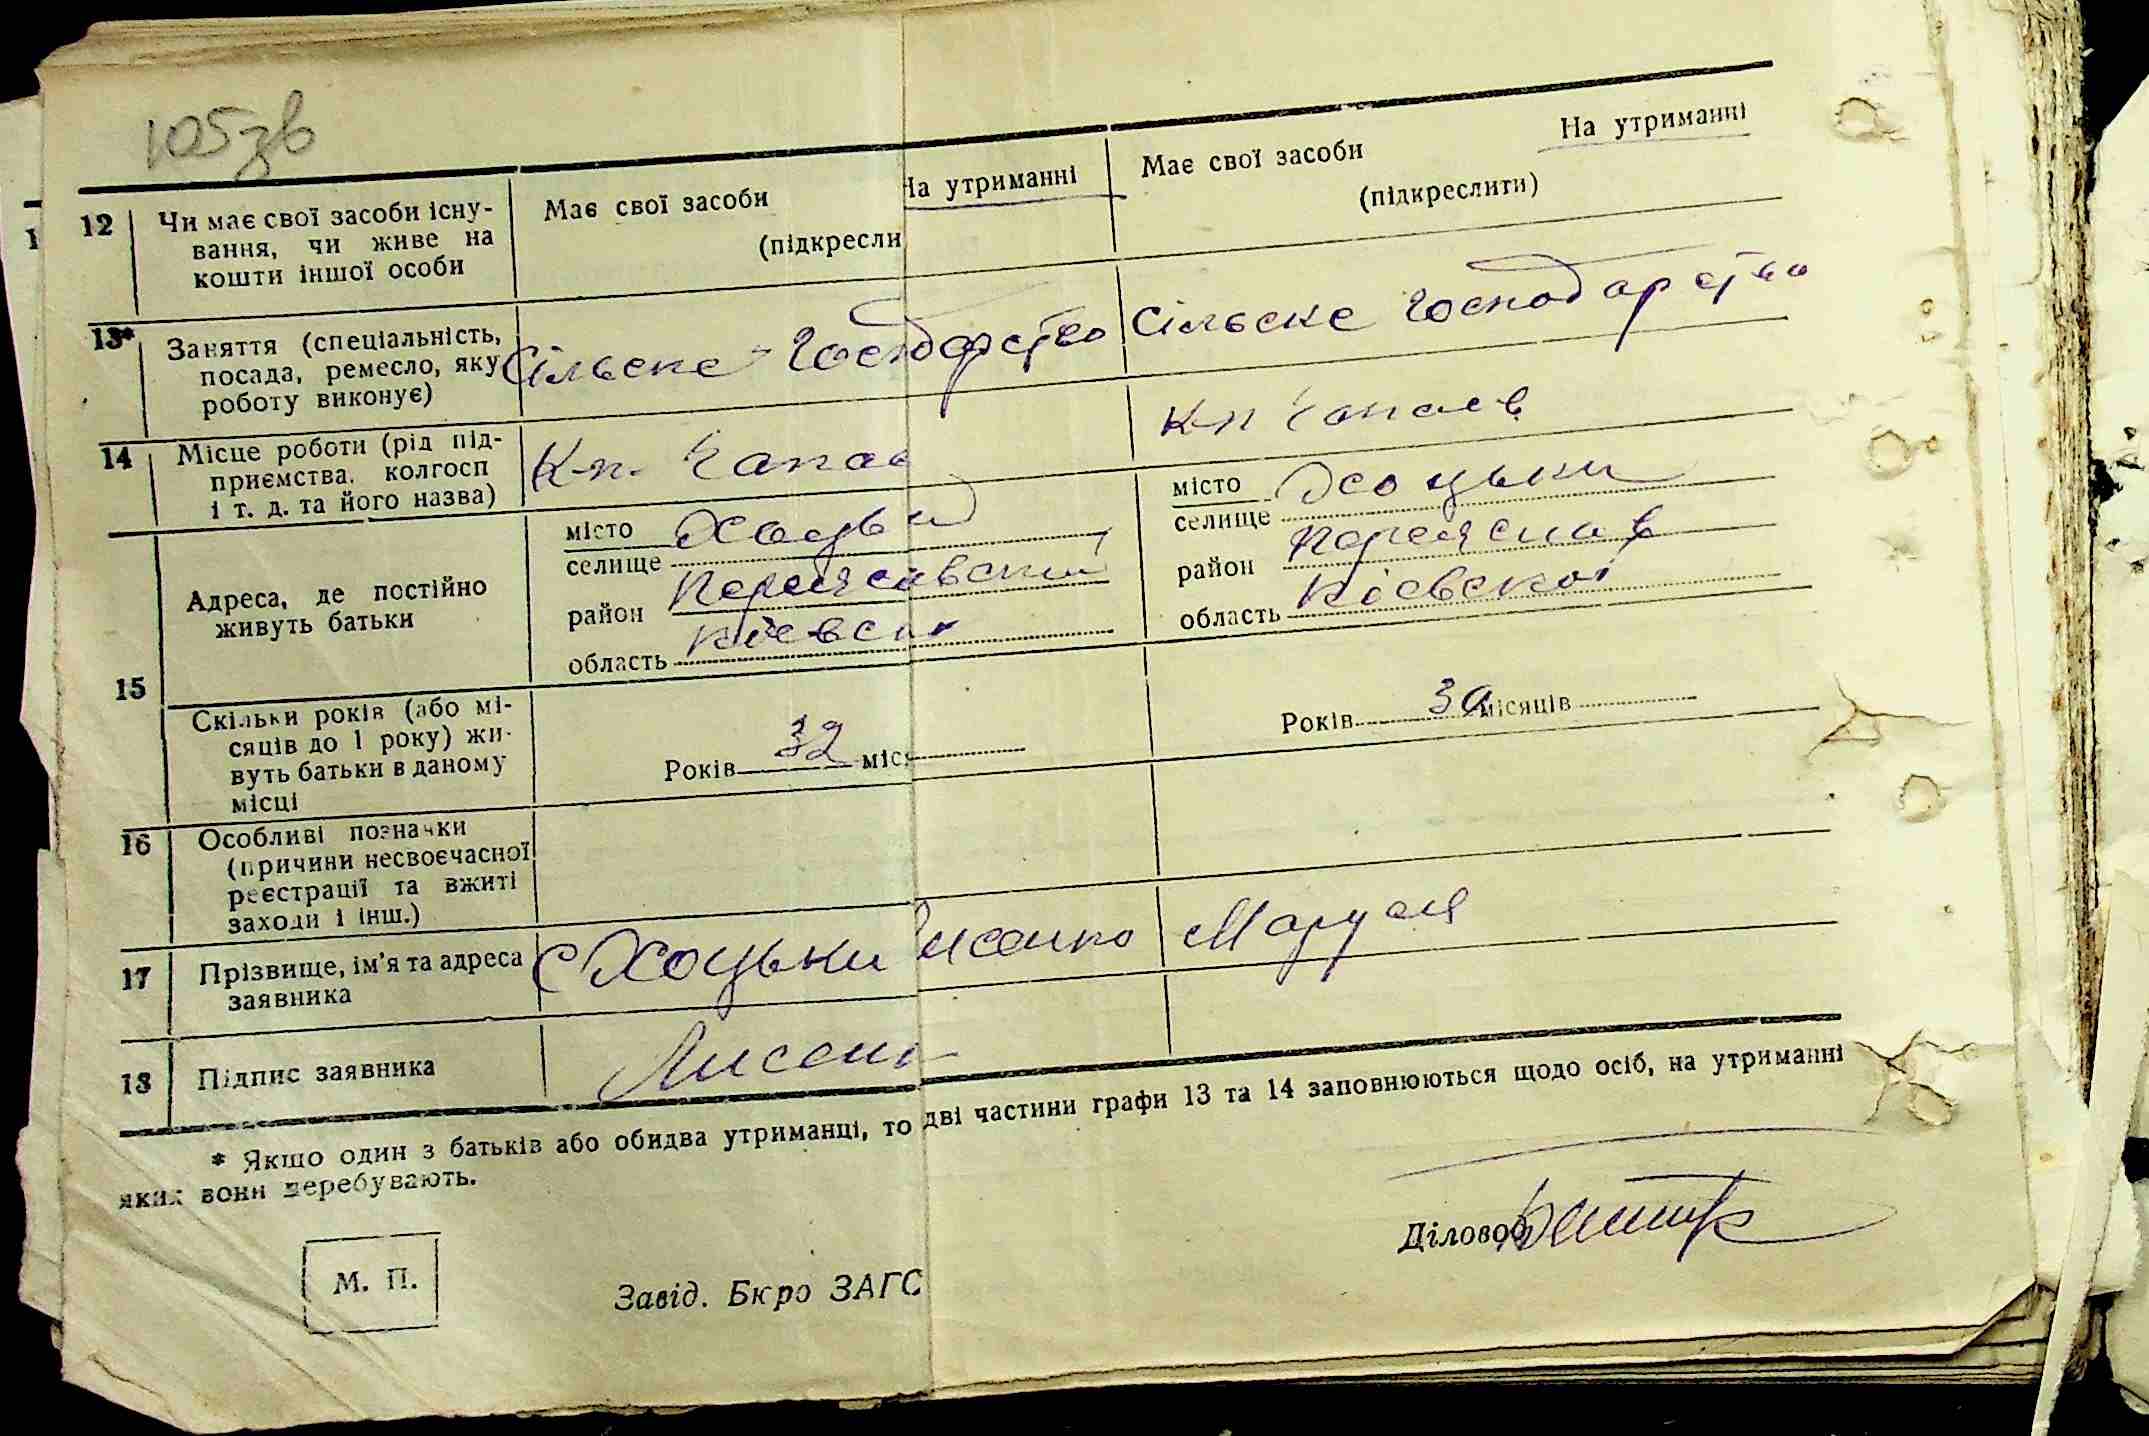 105зв
12 Чи має свої засоби існу- Має свої засоби На утриманні Має свої засоби На утриманні
вання, чи живе на (підкресли (підкреслити)
кошти іншої особи
13* Заняття (спеціальність, Сільске Господарство Сільске Господарство
посада, ремесло, яку
роботу виконує)
14 Місце роботи (рід під- К-п. Чапаєв к-п Чапаєв
приємства, колгосп
і т. д. та його назва)
15 Адреса, де постійно
живуть батьки
місто Хоцьки місто Хоцьки
селище селище
район Переяславский район Переяслав
область Кіевск область Кіевской
Скільки років (або мі-
сяців до 1 року) жи-
вуть батьки в даному
місці
Років 32 міся Років 30 місяців
16 Особливі позначки
(причини несвоєчасної
реєстрації та вжиті
заходи і інш.)
17 Прізвище, ім'я та адреса с Хоцьки Лисенко Маруся
заявника
18 Підпис заявника Лисенк
* Якшо один з батьків або обидва утриманці, то дві частини графи 13 та 14 заповнюються щодо осіб, на утриманні
яких вони перебувають.
М. П.
Завід. Бюро ЗАГС
Діловод